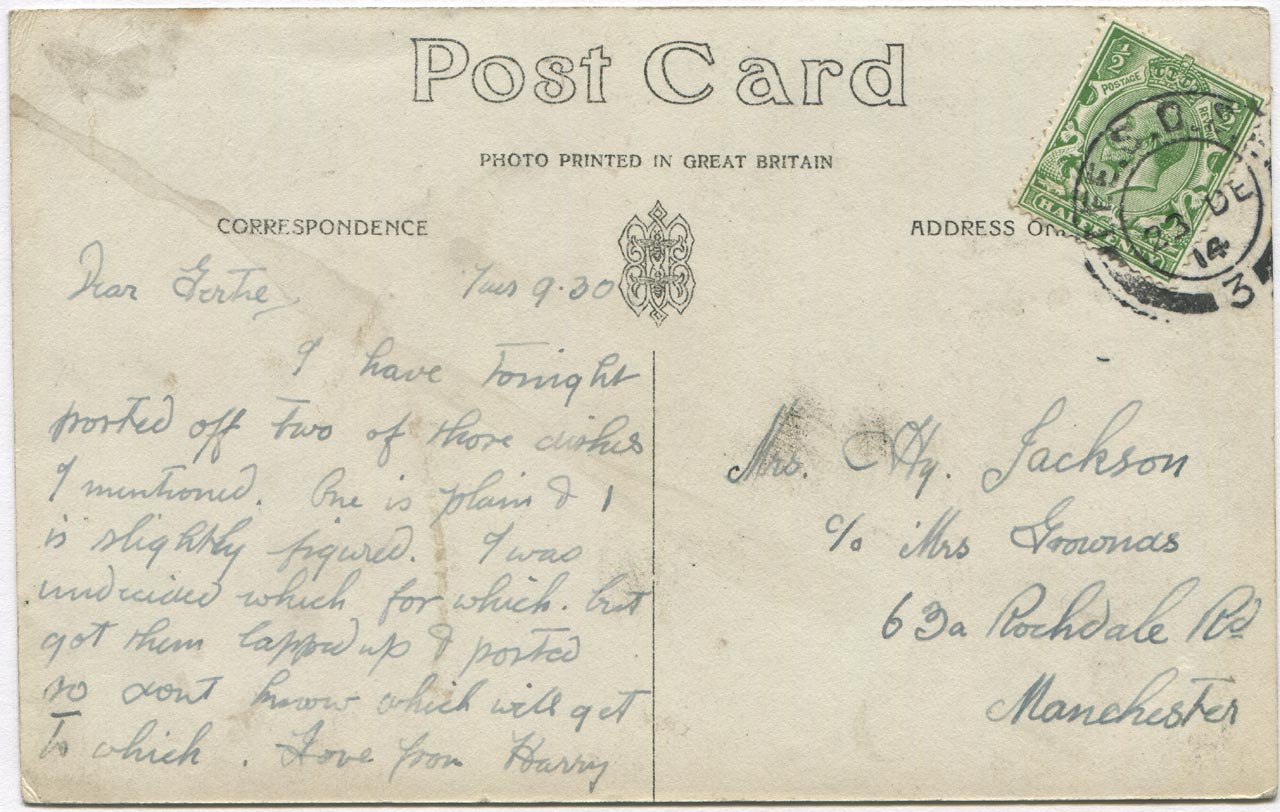 Post Card
PHOTO PRINTED IN GREAT BRITAIN
CORRESPONDENCE
ADDRESS ON
½
POSTAGE
HALF
S.O.
23 DE
14
3
Dear Gertie
Tues 9.30
I have tonight
posted off two of those dishes
I mentioned. One is plain & 1
is slightly figured. I was
undecided which for which. but
got them lapped up & posted
so dont know which will get
to which. Love from Harry
Mrs. Hy. Jackson
c/o Mrs Grownas
63a Rochdale Rd
Manchester